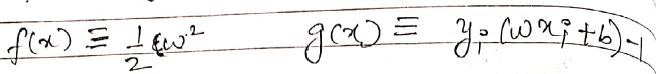 f(x) ≡ 1/2 w² g(x) ≡ yᵢ (wxᵢ + b) - 1